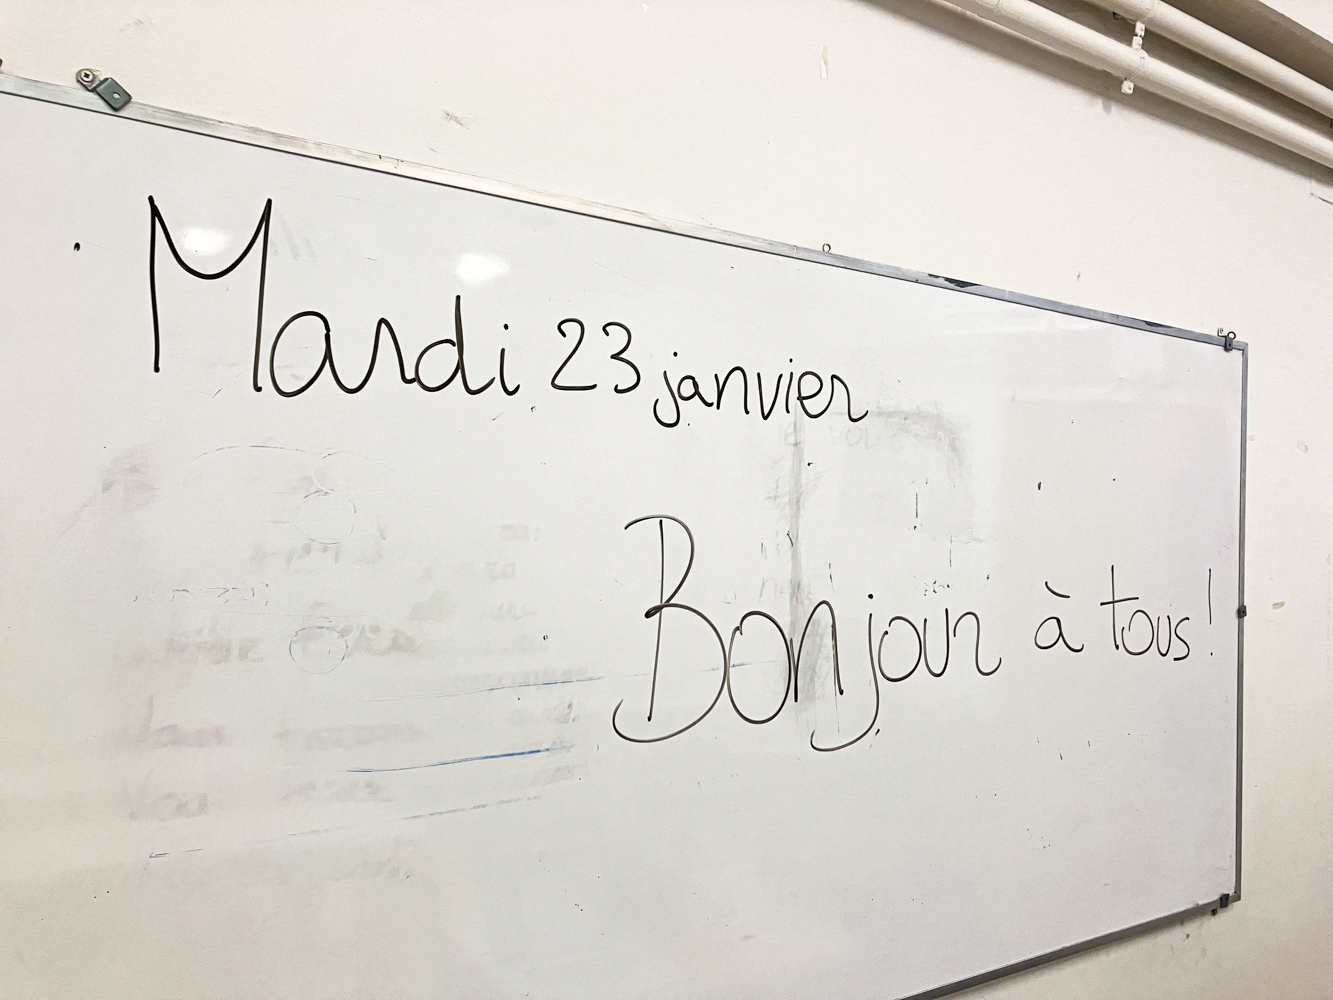 Mardi 23 janvier
Bonjour à tous!